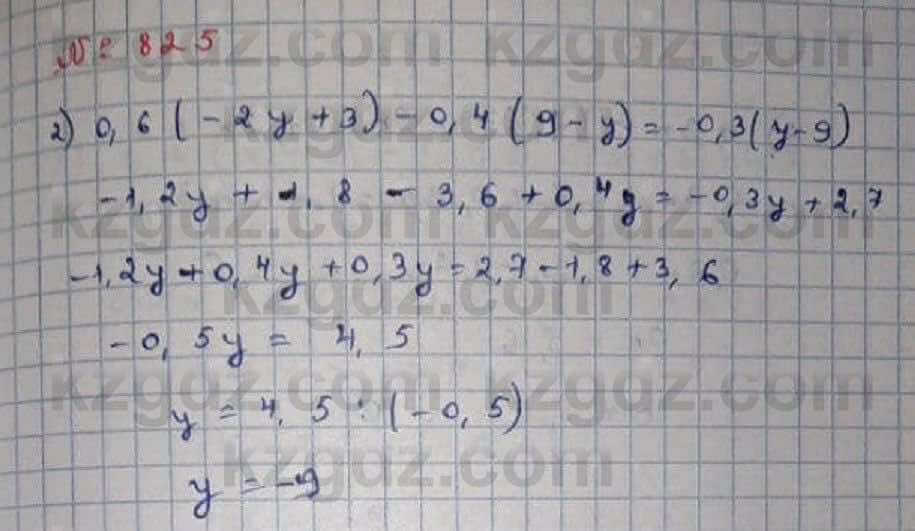 № 825
2) 0,6(-2y+3)-0,4(9-y)=-0,3(y-9)
-1,2y+1,8-3,6+0,4y=-0,3y+2,7
-1,2y+0,4y+0,3y=2,7-1,8+3,6
-0,5y=4,5
y=4,5:(-0,5)
y=-9
kzgdz.com kzgdz.com
kzgdz.com
kzgdz.com kzgdz.com
kzgdz.com
kzgdz.com kzgdz.com
kzgdz.com